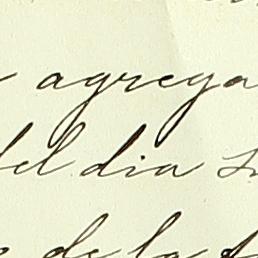 agrega
del dia
de la